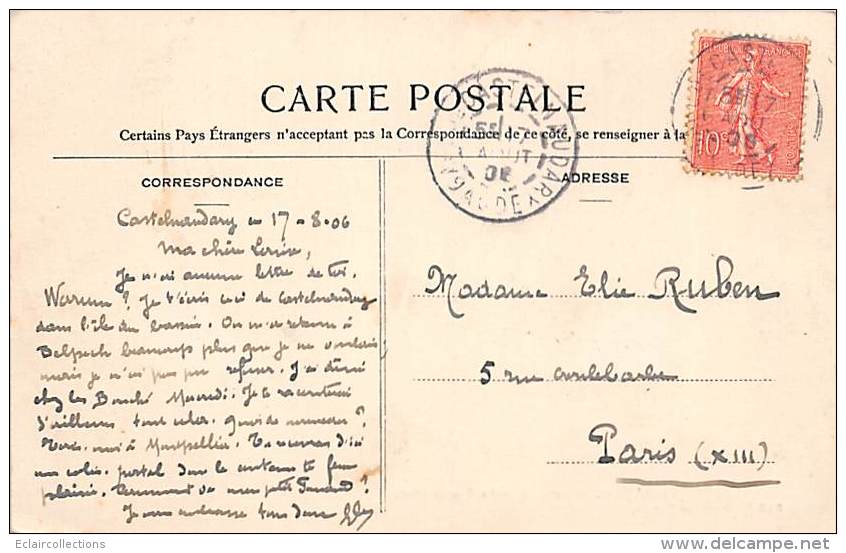 CARTE POSTALE
Certains Pays Étrangers n'acceptant pas la Correspondance de ce côté, se renseigner à la
CORRESPONDANCE
ADRESSE
REPUBLIQUE FRANÇAISE
10c
CASTELNAUDARY
17
AOUT
06
AUDE
Castelnaudary 17-8-06
Ma chère Louise,
Je n'ai aucune lettre de toi.
Warum? Je t'écris ceci de Castelnaudary
dans l'île du bassin. On me retient à
Belpech beaucoup plus que je ne voudrais,
mais je n'ai pas pu refuser. J'ai dîné
chez les Bouché Mercredi. Je te raconterai
d'ailleurs tout cela. Quoi de nouveau?
Écris-moi à Montpellier. Tu recevras d'ici
un colis postal dont le contenu te fera
plaisir. Comment va mon petit?
Je vous embrasse tous deux
Madame Elie Ruben
5 rue Croulebarbe
Paris (XIII)
Eclaircollections
www.delcampe.net